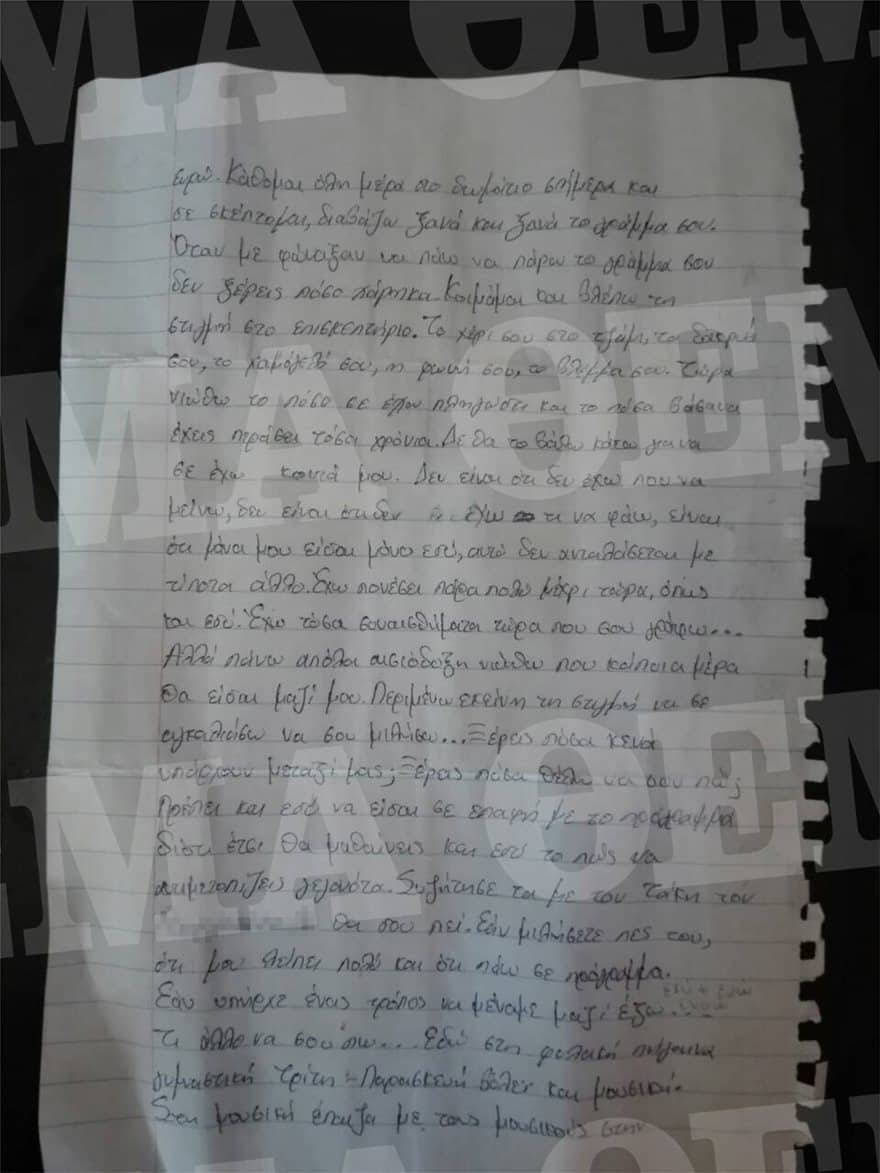 εγώ. Κάθομαι όλη μέρα στο δωμάτιο σήμερα και
σε σκέπτομαι, διαβάζω ξανά και ξανά το γράμμα σου.
Όταν με φώναξαν να πάω να πάρω το γράμμα σου
δεν ξέρεις πόσο χάρηκα Κοιμάμαι και βλέπω τη
στιγμή στο επισκεπτήριο. Το χέρι σου στο τζάμι, το δάκρυ
σου, το χαμόγελό σου, η φωνή σου, το βλέμμα σου. Τώρα
νιώθω το πόσο σε έχουν πληγώσει και το πόσα βάσανα
έχεις περάσει τόσα χρόνια. Δε θα το βάλω κάτω για να
σε έχω κοντά μου. Δεν είναι ότι δεν έχω που να
μείνω, δεν είναι ότι δεν έχω τι να φάω, είναι
ότι μάνα μου είσαι μόνο εσύ, αυτό δεν ανταλάσεται με
τίποτα άλλο. Έχω πονέσει πάρα πολύ μέχρι τώρα, όπως
και εσύ. Έχω τόσα συναισθήματα τώρα που σου γράφω...
Αλλά πάνω απόλα αισιόδοξη νιώθω που κάποια μέρα
θα είσαι μαζί μου. Περιμένω εκείνη τη στιγμή να σε
αγκαλιάσω να σου μιλήσω... Ξέρεις πόσα κενά
υπάρχουν μεταξί μας; Ξέρεις πόσα θέλω να σου πώ;
Πρέπει και εσύ να είσαι σε επαφή με το πρόγραμμα
διότι έτσι θα μαθαίνεις και εσύ το πώς να
αντιμετοπίζεις γεγονότα. Συζήτησε τα με τον Τάκη τον
θα σου πεί. Εάν μιλήσετε πες του,
ότι μου λείπει πολύ και ότι πάω σε πρόγραμμα.
Εάν υπήρχε ένας τρόπος να μέναμε μαζί έξω...
Τι άλλο να σου πω... Εδώ στη φυλακή πήγαινα
γυμναστική Τρίτη - Παρασκευή βόλεϊ και μουσική.
Στη μουσική έπαιζα με τους μουσικούς στην
ΜΑ ΘΕΜ
ΘΕΜ
ΜΑ ΘΕΜ
ΘΕΜ
ΜΑ ΘΕΜ